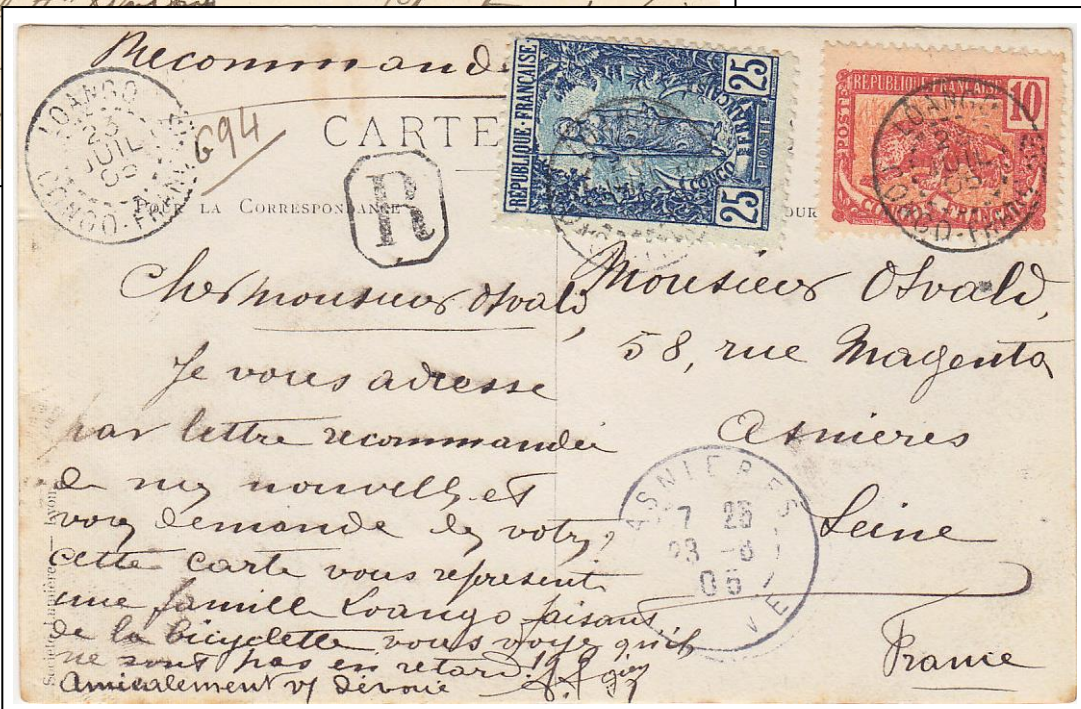 Recommand
LOANGO
23
JUIL
05
CONGO-FRANÇAIS
694
CARTE
R
RÉPUBLIQUE-FRANÇAISE
25
25
CONGO FRANÇAIS
POSTES
RÉPUBLIQUE FRANÇAISE
10
POSTES
CONGO FRANÇAIS
LOANGO
JUIL
05
CONGO-FRANÇAIS
POUR LA CORRESPONDANCE
OUR
Cher monsieur Osvald,
Je vous adresse
par lettre recommandée
de mes nouvelles et
vous demande des votres,
cette carte vous représent
une famille Loango faisant
de la bicyclette vous voyez qu'ils
ne sont pas en retard!
Amicalement vs dévoué
Monsieur Osvald,
58, rue Magenta
Asnieres
Seine
France
ASNIERES
7 25
23 -8
05
Société Lumière — Lyon